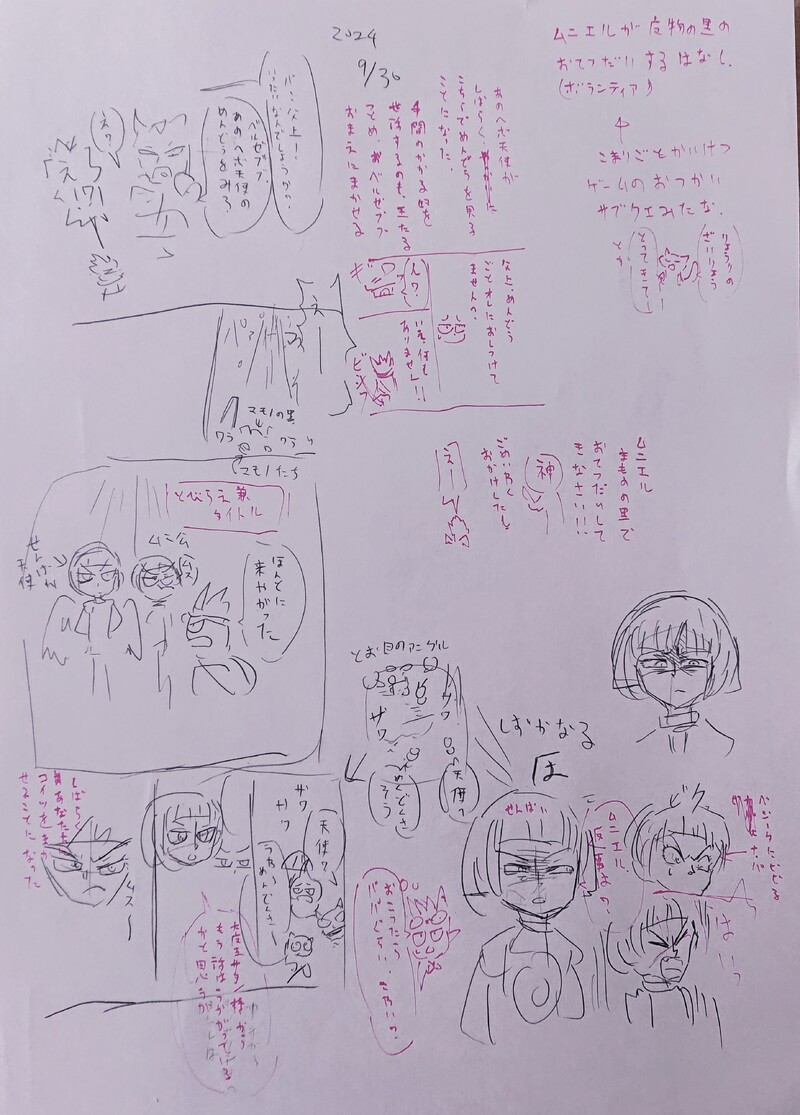 2024
9/30
ムニエルが魔物の里の
おてつだいするはなし。
(ボランティア)
こまりごとかいけつ
ゲームのおつかい
サブクエみたいな。
りょうりの
ざいりょう
とってきてー
とか
あのヘボ天使が
しばらく
こちらでめんどうを見る
ことになった。
手間のかかる奴を
世話するのも、王たる
つとめ。おベルゼブブ
おまえにまかせる
パ…父上ー!
いったいなんでしょうか?
ベルゼブブ
あのヘボ天使の
めんどうをみろ
え?
えーっ!?
父上、めんどう
ごとオレにおしつけて
ませんか?
ん?
いえ何も
ありません!!
ビシッ
えー
パァ
マモノの里
ワラ
ワラ
マモノたち
ムニエル
まものの里で
おてつだいして
きなさい!!!
神
ごめいわく
おかけしたし
えー
とびらえ兼
タイトル
せんぱい
天使
ムニ公
ムス
ほんとに
来やがった
とお目のアングル
ザワ
ザワ
天使?
めんどくさ
そう
しばらく
あなたに
コイツをまか
せることになった
ムス〜
ザワ
ザワ
天使?
うわぁ
めんどくさー
大魔王サタン様から
もう話はうかがっている
かと思うが
しずかなる
ほ
せんぱい
おこったら
パパぐらい
こわいの?
ムニエル、
返事は?
ベジータにことせる
ナッパ
はいっ